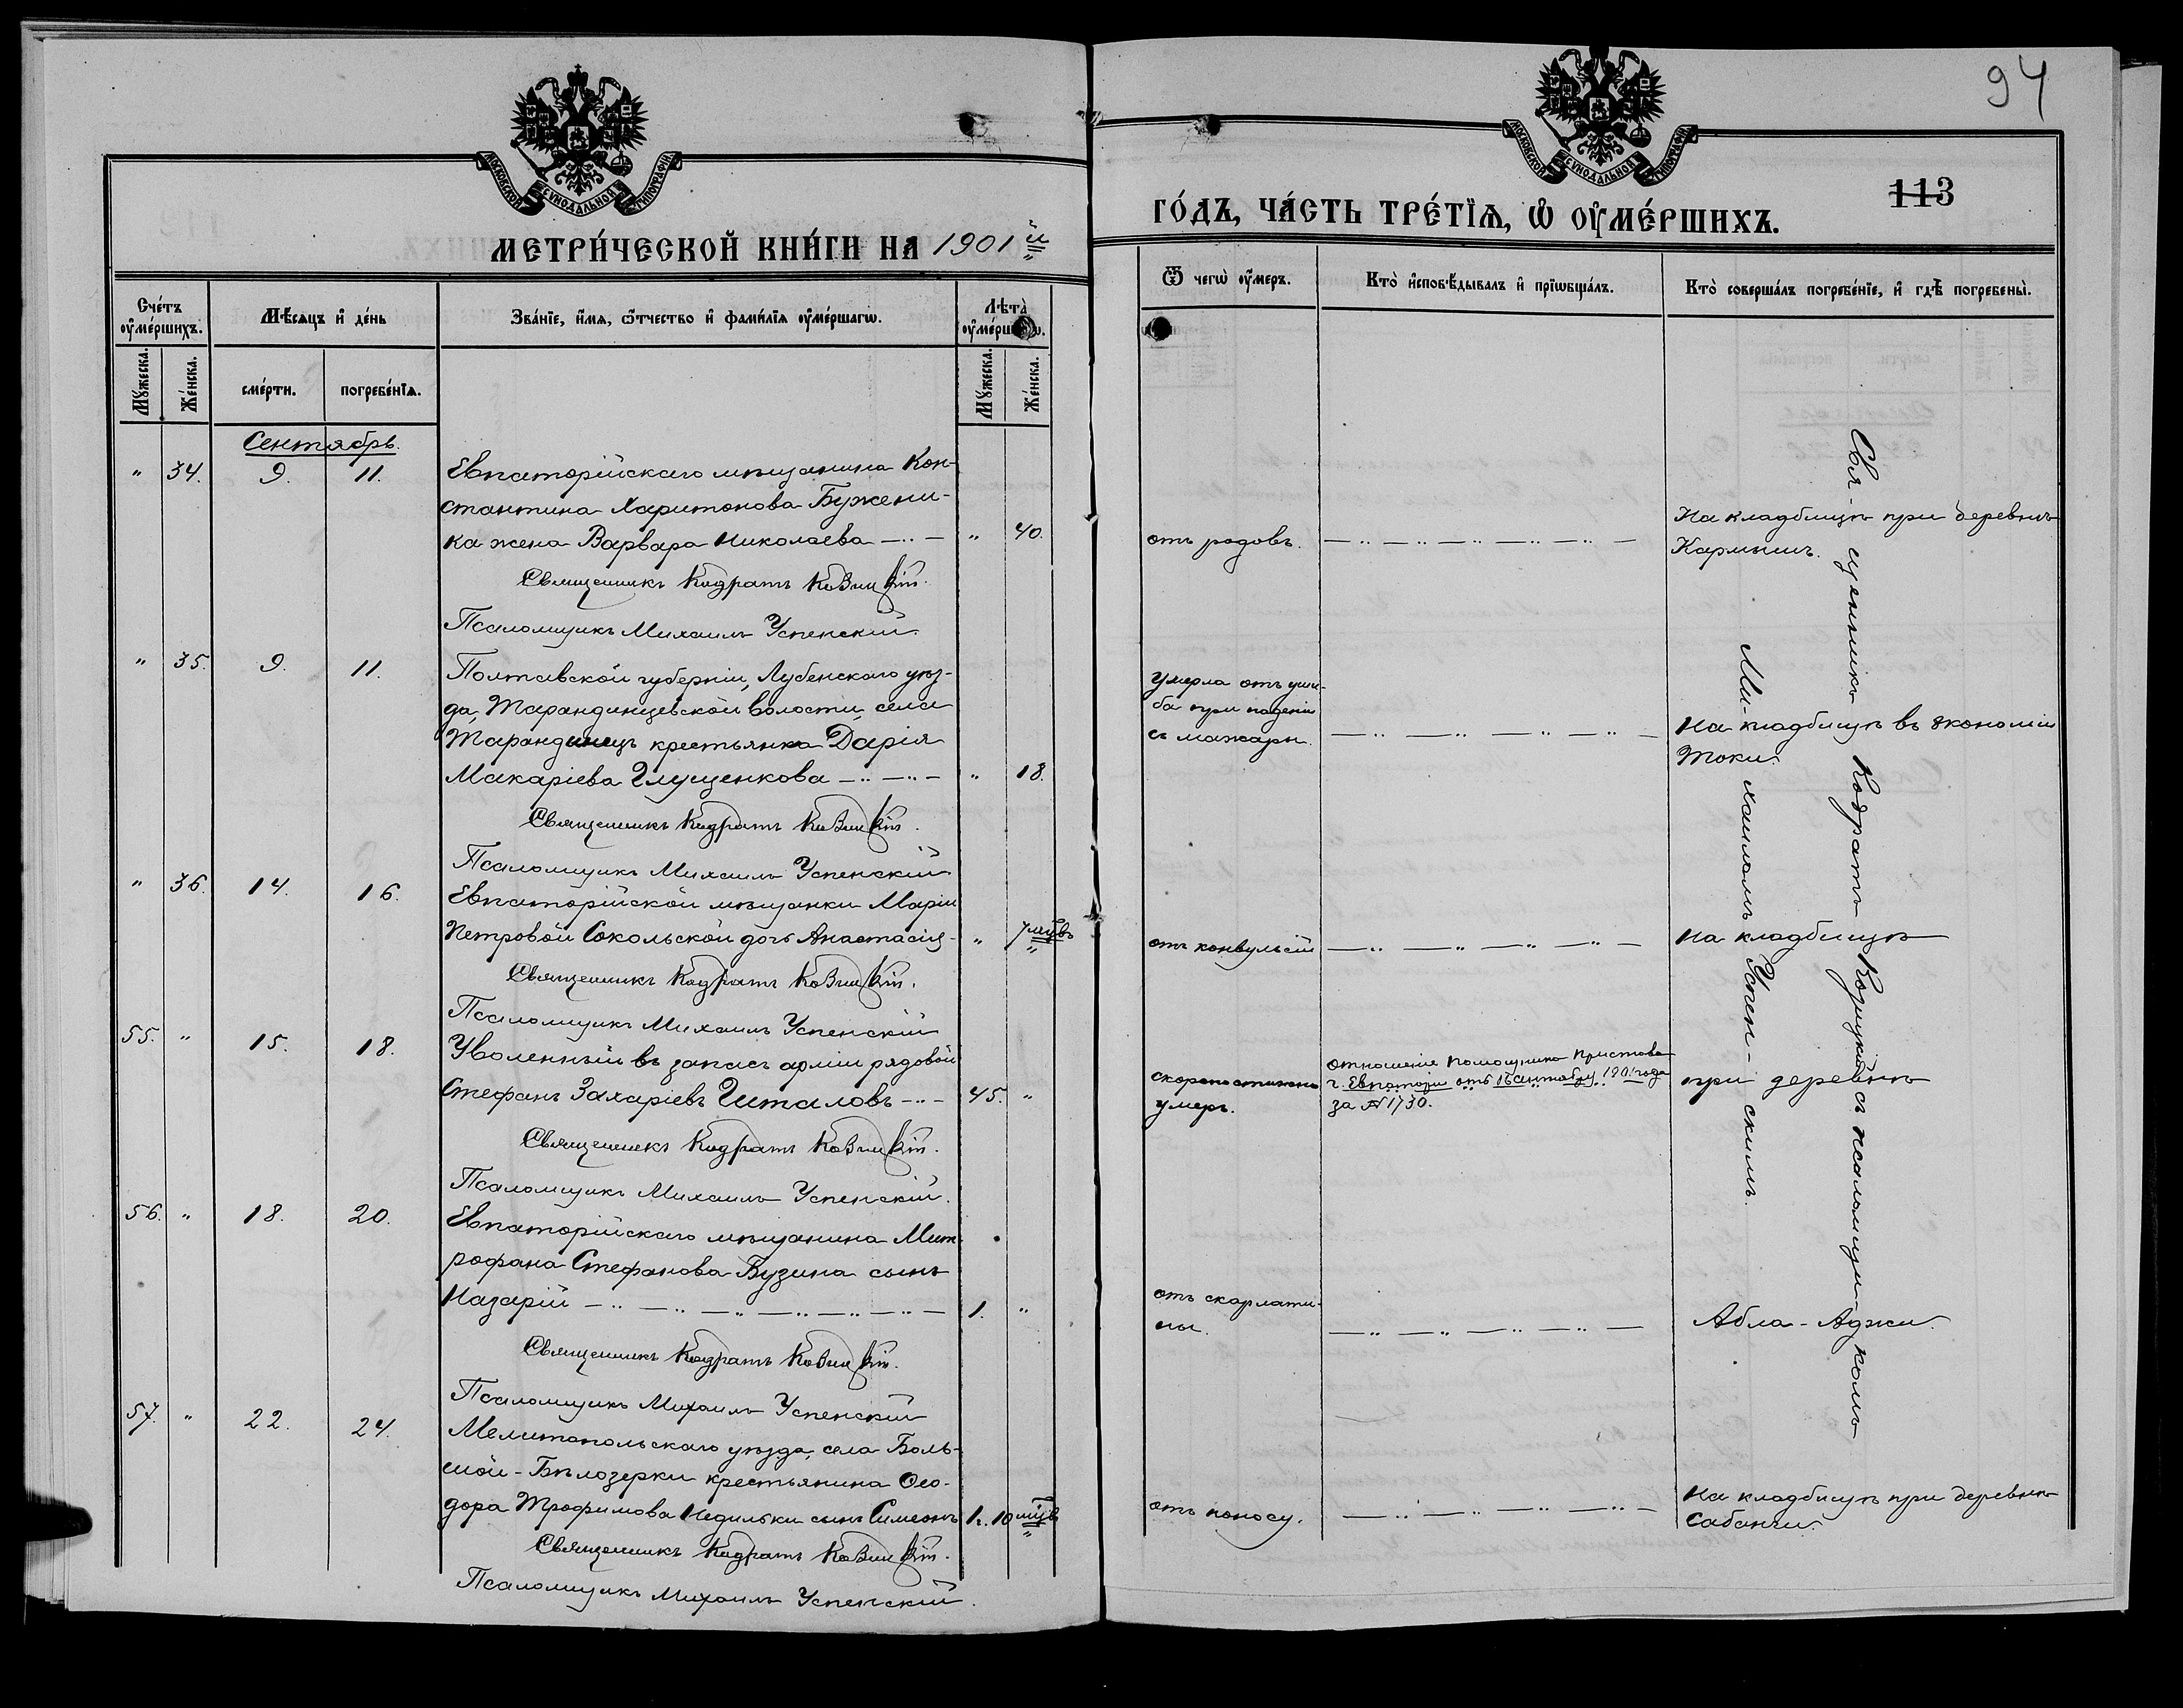 МОСКОВСКОЙ СѴНОДАЛЬНОЙ ТИПОГРАФІИ
МЕТРИ́ЧЕСКОЙ КНИ́ГИ НА 1901й
Сче́тъ ᲂу҆ме́ршихъ.
Мѣ́сѧцъ и҆ де́нь
Зва́нїе, и҆́мѧ, ѻ҆́тчество и҆ фами́лїѧ ᲂу҆ме́ршагѡ.
Лѣ́та̀
Мꙋ́жеска.
Же́нска.
сме́рти.
погребе́нїѧ.
Мꙋ́жеска.
Же́нска.
Сентябрь.
" 34. 9. 11. Евпаторійскаго мѣщанина Кон-
стантина Харитонова Бужени-
ка жена Варвара Николаева " 40.
Священникъ Кодратъ
Псаломщикъ Михаилъ Успенскій.
" 35. 9. 11. Полтавской губерніи, Лубенскаго уѣз-
да, Тарандинцевской волости, села
Тарандинецъ крестьянка Дарія
Макаріева Глущенкова " 18.
Священникъ Кодратъ
Псаломщикъ Михаилъ Успенскій
" 36. 14. 16. Евпаторійской мѣщанки Маріи
Петровой Сокольской дочь Анастасія " 7 мцвъ
Священникъ Кодратъ
Псаломщикъ Михаилъ Успенскій
55. " 15. 18. Уволенный въ запасъ арміи рядовой
Стефанъ Захаріевъ Шталовъ 45. "
Священникъ Кодратъ
Псаломщикъ Михаилъ Успенскій.
56. " 18. 20. Евпаторійскаго мѣщанина Мит-
рофана Стефанова Бузина сынъ
Назарій 1. "
Священникъ Кодратъ
Псаломщикъ Михаилъ Успенскій
57. " 22. 24. Мелитопольскаго уѣзда, села Боль-
шой-Бѣлозерки крестьянина Ѳео-
дора Трофимова Недильки сынъ Симеонъ 1 г. 10 мцвъ
Священникъ Кодратъ
Псаломщикъ Михаилъ Успенскій.
94
113
МОСКОВСКОЙ СѴНОДАЛЬНОЙ ТИПОГРАФІИ
ГО́ДЪ, ЧА́СТЬ ТРЕ́ТЇѦ, Ѡ҆ ОУ҆МЕ́РШИХЪ.
Ѿ чегѡ̀ ᲂу҆́меръ.
Кто̀ и҆сповѣ́дывалъ и҆ прїѡбща́лъ.
Кто̀ соверша́лъ погребе́нїе, и҆ гдѣ̀ погребены̀.
отъ родовъ.
На кладбищѣ при деревнѣ
Кармышъ.
умерла отъ уши-
ба при паденіи
съ мажары.
На кладбищѣ въ экономіи
Токи.
отъ конвульсій
На кладбищѣ
скоропостижно
умеръ.
отношеніе Помощника Пристава
г. Евпаторіи отъ 16 сентября 1901 года
за № 1730.
при деревнѣ
отъ скарлати-
ны.
Абла-Аджи.
отъ поносу.
На кладбищѣ при деревнѣ
Сабанчи.
Свя-щенникъ Кодратъ съ псаломщи-комъ
Ми-хаиломъ Успен-скимъ